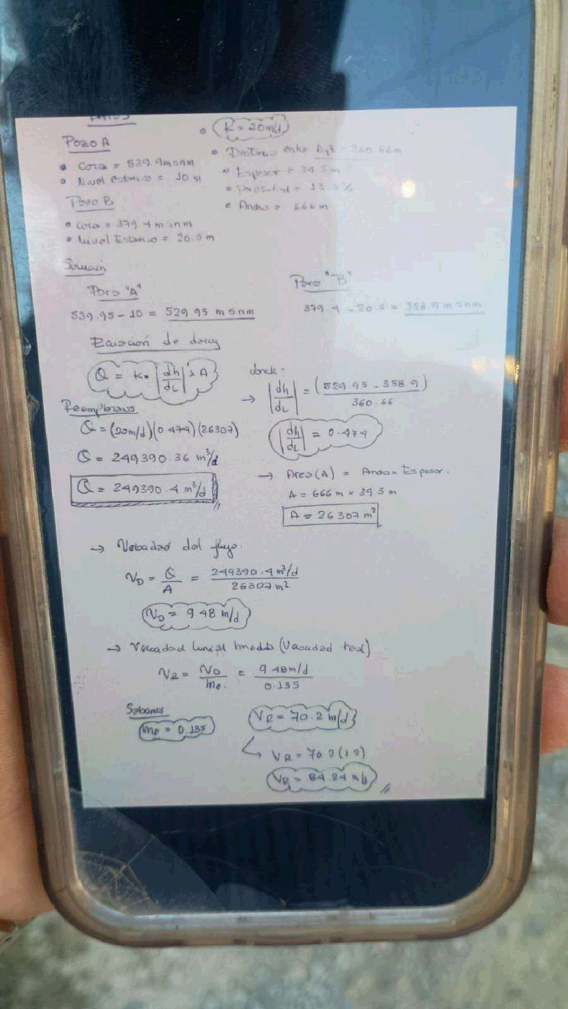 DATOS
Pozo A
• Cota = 539.9 msnm
• Nivel Estático = 10 m
Pozo B
• Cota = 379.4 msnm
• Nivel Estático = 20.5 m
• K = 20 m/d
• Distancia entre AyB = 360.66 m
• Espesor = 39.5 m
• Porosidad = 13.5 %
• Ancho = 666 m
Solución
Pozo "A"
539.95 - 10 = 529.95 msnm
Pozo "B"
379.4 - 20.5 = 358.9 msnm
Ecuación de darcy
Q = K * |dh/dL| * A
donde:
→ |dh/dL| = (529.95 - 358.9) / 360.66
|dh/dL| = 0.474
Reemplazamos
Q = (20m/d)(0.474)(26307)
Q = 249390.36 m³/d
Q = 249390.4 m³/d
→ Area(A) = Ancho x Espesor.
A = 666 m x 39.5 m
A = 26307 m²
→ Velocidad del flujo.
VD = Q/A = 249390.4 m³/d / 26307 m²
VD = 9.48 m/d
→ Velocidad lineal media (Velocidad real)
VR = VD/me. = 9.48 m/d / 0.135
Sabemos
me = 0.135
VR = 70.2 m/d
VR = 70.2 (1.2)
VR = 84.24 m/d